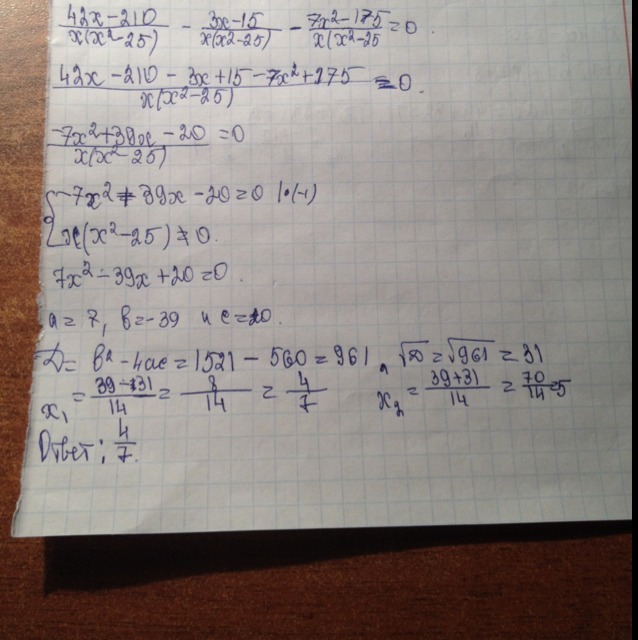 (42x-210)/(x(x²-25)) - (3x-15)/(x(x²-25)) - (7x²-175)/(x(x²-25) = 0.
(42x-210-3x+15-7x²+175)/(x(x²-25)) = 0.
(-7x²+39x-20)/(x(x²-25)) = 0
{ -7x²+39x-20=0 |·(-1)
x(x²-25)≠0.
7x²-39x+20=0.
a=7, b=-39 и c=20.
D=b²-4ac=1521-560=961, √D=√961=31
x₁=(39-31)/14=8/14=4/7 x₂=(39+31)/14=70/14=5
Ответ: 4/7.